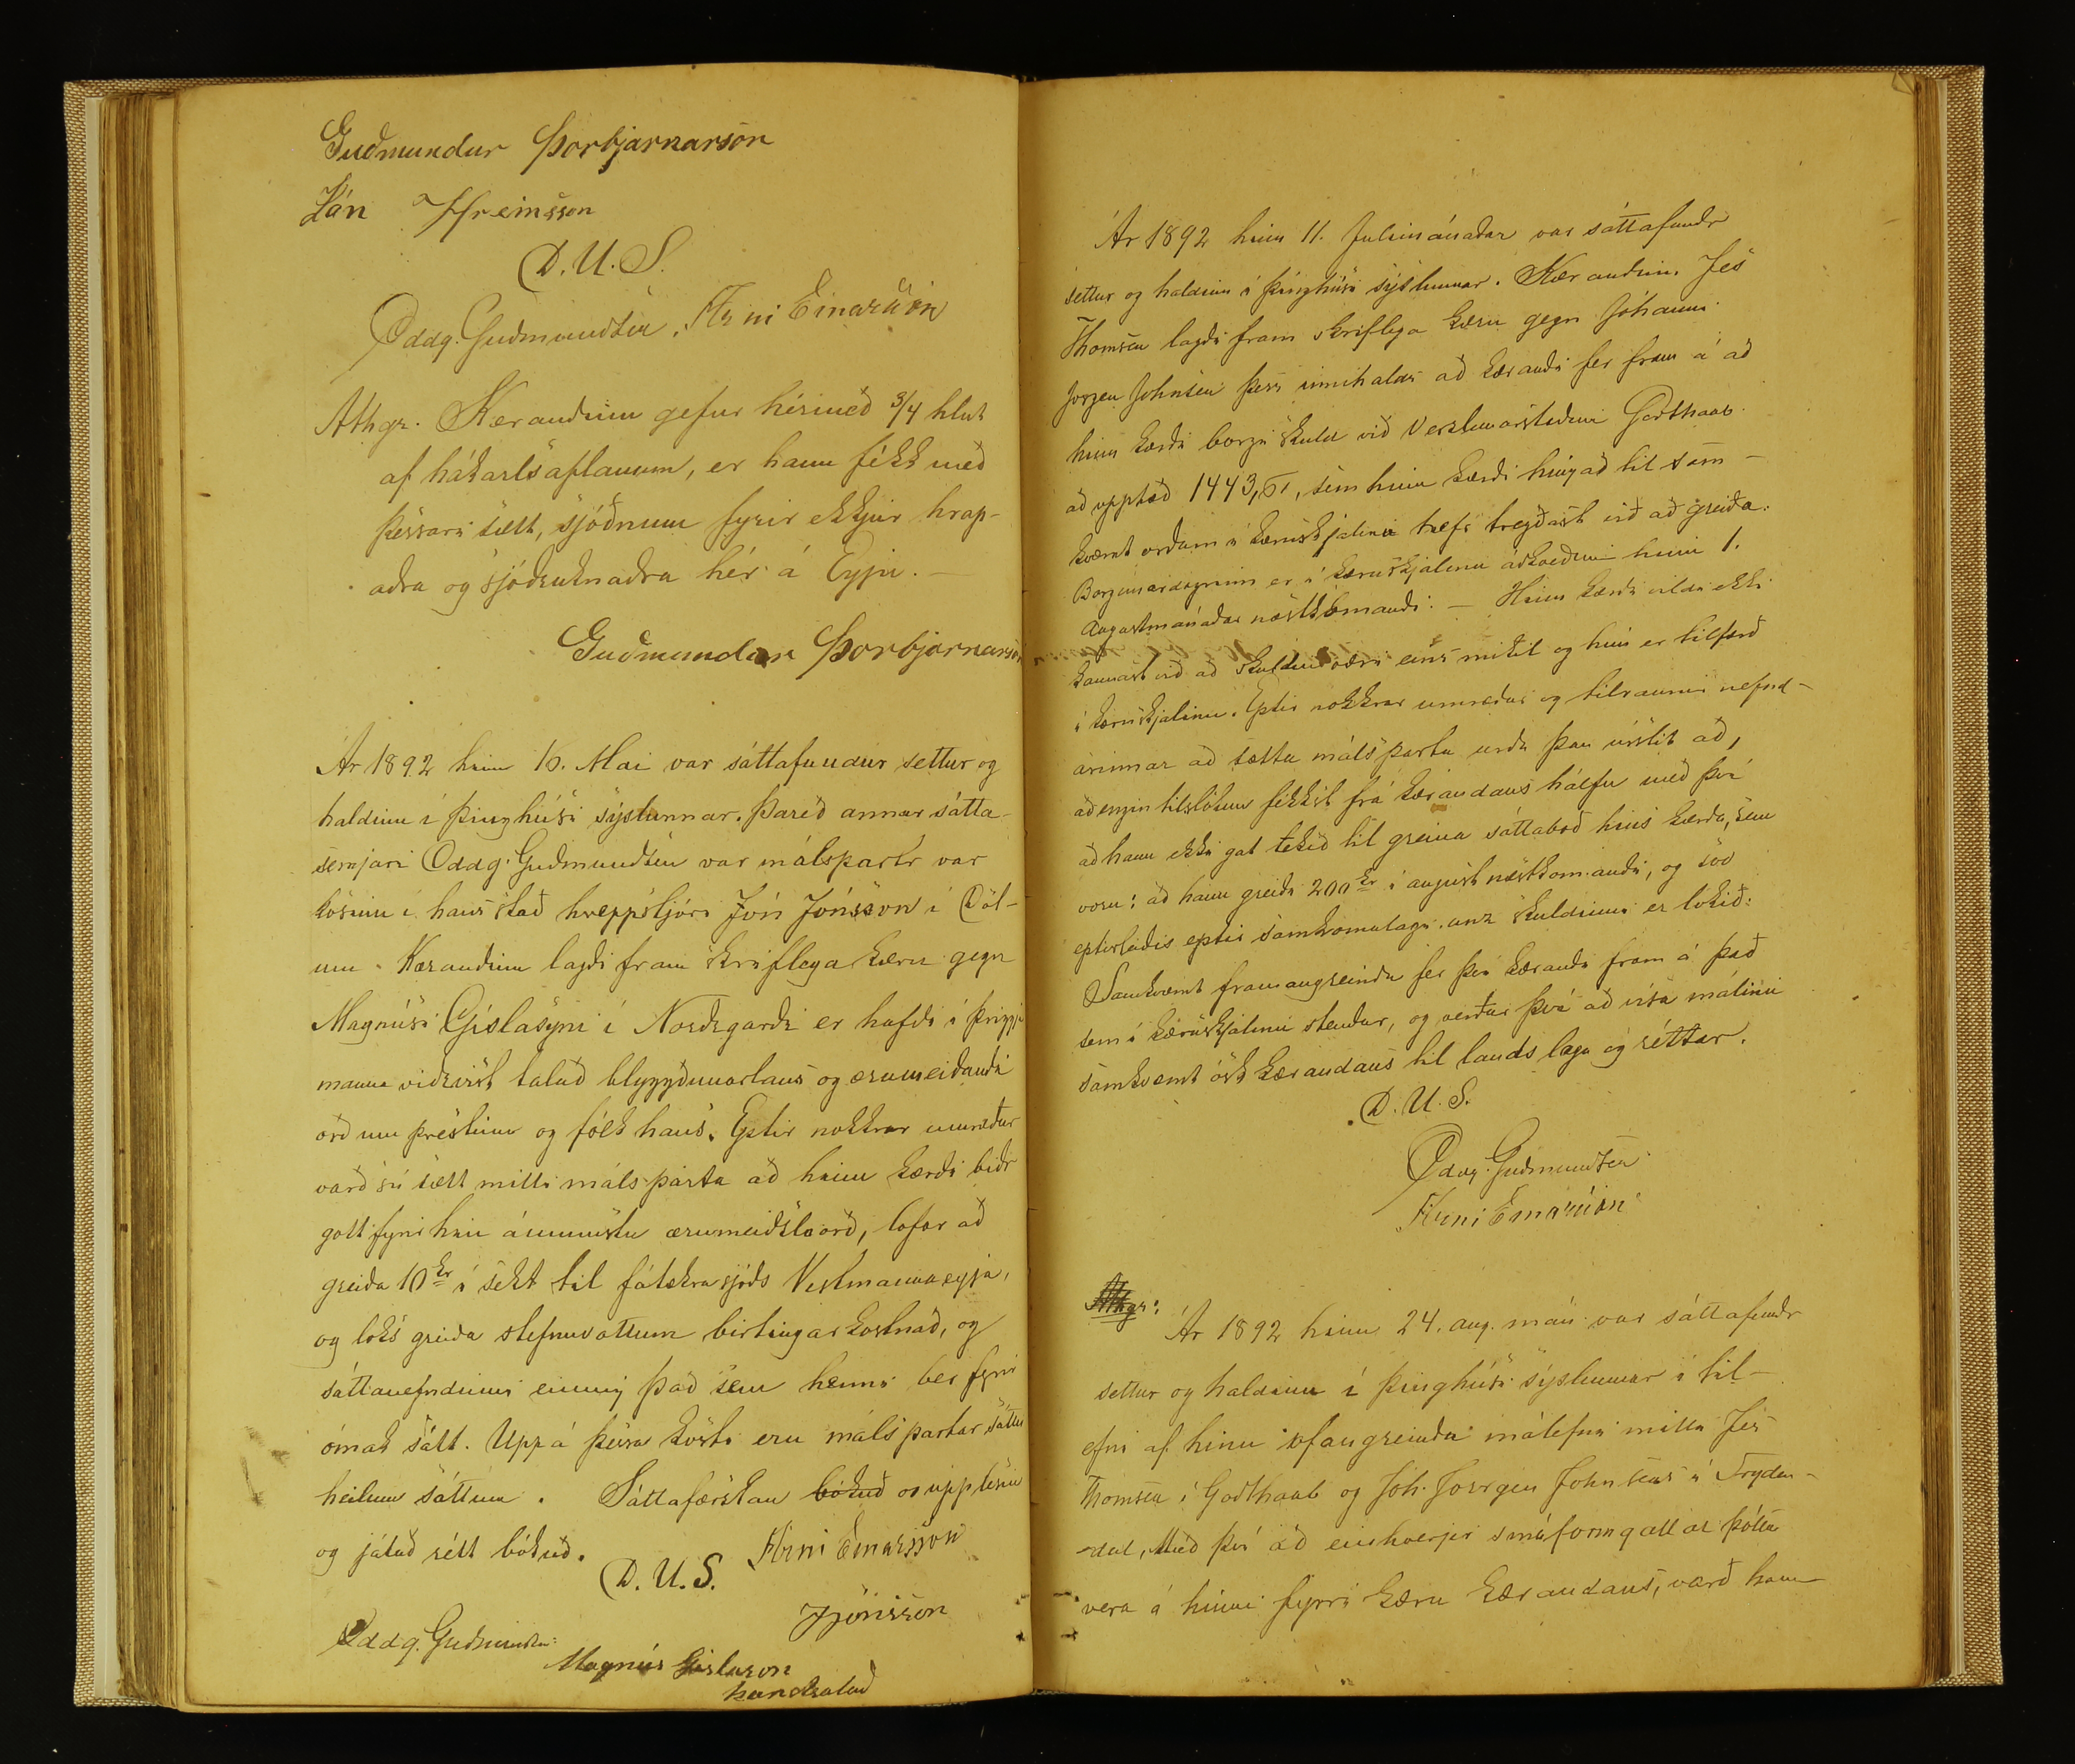 Guðmundur Þorbjarnarson
Lán Hreinsson
D. U. S.
Oddg. Guðmundsen. Árni Einarsson
Athgr. Kærandinn gefur hérmeð 3/4 hlut
af hákarlsaflanum, er hann fékk með
þessari sætt, sjóðnum fyrir ekkjur hrap-
aðra og sjódruknaðra hér á Eyju. —
Guðmundur Þorbjarnarson
Ár 1892 hinn 16. Mai var sáttafundur settur og
haldinn í þinghúsi sýslunnar. Þareð annar sátta-
semjari Oddg. Guðmundsen var málspartr var
kosinn í hans stað hreppstjóri Jón Jónsson í Döl-
um. Kærandinn lagði fram skriflega kæru gegn
Magnúsi Gíslasyni í Norðrgarði er hafði í þriggja
manna viðrvist talað blygðunarlaus og ærumeiðandi
orð um prestinn og fólk hans. Eptir nokkrar umræður
varð sú sætt milli málsparta að hinn kærði biðr
gott fyrir hin ámunnstu ærumeiðslaorð, lofar að
greiða 10 kr í sekt til fátækrasjóðs Vestmannaeyja,
og loks greiða stefnuvottum birtingarkostnað, og
sáttanefndinni einnig það sem henni ber fyrir
ómak sitt. Uppá þessa kosti eru málspartar sáttir
heilum sáttum. Sáttafærslan bókuð og upplesin
og játað rétt bókuð.
D. U. S. Árni Einarsson
JJónsson
Oddg. Guðmundsen
Magnús Gíslason
handsalað
Ár 1892 hinn 11. Júlimánaðar var sáttafundr
settur og haldinn í þinghúsi sýslunnar. Kærandinn. Jes
Thomsen lagði fram skriflega kæru gegn Jóhanni
Jörgen Johnsen þess innihalds að kærandi fer fram á að
hinn kærði borgi skuld við Verzlunarstaðinn Godthaab
að upphæð 1443, sem hinn kærði hingað til sam-
kvæmt orðum í kæruskjalinu hefir tregðast við að greiða.
Borgunardagrinn er í kæruskjalinu ákveðinn hinn 1.
Augustmánaðar næstkomandi. — Hinn kærði vildi ekki
kannast við að skuldin væri eins mikil og hún er tilfærð
í kæruskjalinu. Eptir nokkrar umræður og tilraunir nefnd-
arinnar að sætta málsparta urðu þau úrslit að,
að engin tilslökun fékkst frá kærandans hálfu með því
að hann ekki gat tekið til greina sáttaboð hins kærða, sem
voru: að hann greiði 200 kr í august næstkomandi, og svo
eptirleiðis eptir samkomulagi unz skuldinni er lokið:
Samkvæmt framangreindu fer því kærandi fram á það
sem í kæruskjalinu stendur, og verður því að vísa málinu
samkvæmt ósk kærandans til lands laga og réttar.
D. U. S.
Oddg. Guðmundsen
Árni Einarsson
Athgr:
Ár 1892 hinn 24. aug. mán var sáttafundr
settur og haldinn í þinghúsi sýslunnar í til-
efni af hinu ofangreindu málefni milli Jes
Thomsen í Godthaab og Joh. Joergen Johnsens í Frydn-
dal, Með því að einhverjir smáformgallar þóttu
vera á hinni fyrri kæru kærandans, varð hann